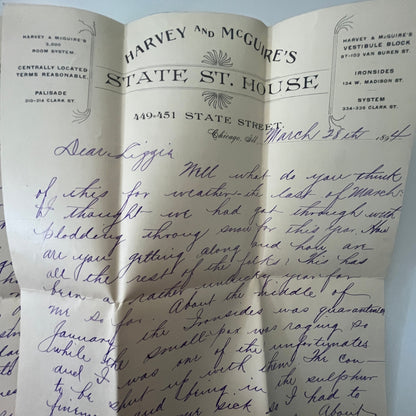 HARVEY & McGUIRE'S
3,000
ROOM SYSTEM
CENTRALLY LOCATED
TERMS REASONABLE.
PALISADE
210-214 CLARK ST.
HARVEY AND McGUIRE'S
STATE ST. HOUSE
449-451 STATE STREET.
HARVEY & McGUIRE'S
VESTIBULE BLOCK
97-103 VAN BUREN ST.
IRONSIDES
134 W. MADISON ST.
SYSTEM
334-336 CLARK ST.
Chicago, Ill., March 28th 1894
Dear Lizzie
Well what do you think
of this for weather the last of March
I thought we had got through with
plodding throug snow for this year. How
are you getting along and how are
all the rest of the folks; This has
been a rather unlucky year for
me so far. About the middle of
January the Ironsides was quarantined
while the small-pox was raging so
and I was one of the unfortunates
to be shut up with them. The con-
and being in the sulphur
sick so I had to
About